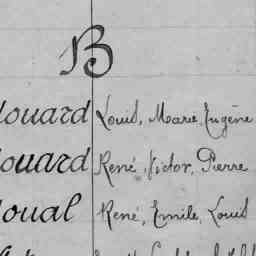 B
douard Louis, Marie Eugène
ouard René, Victor, Pierre
doual René, Emile, Louis